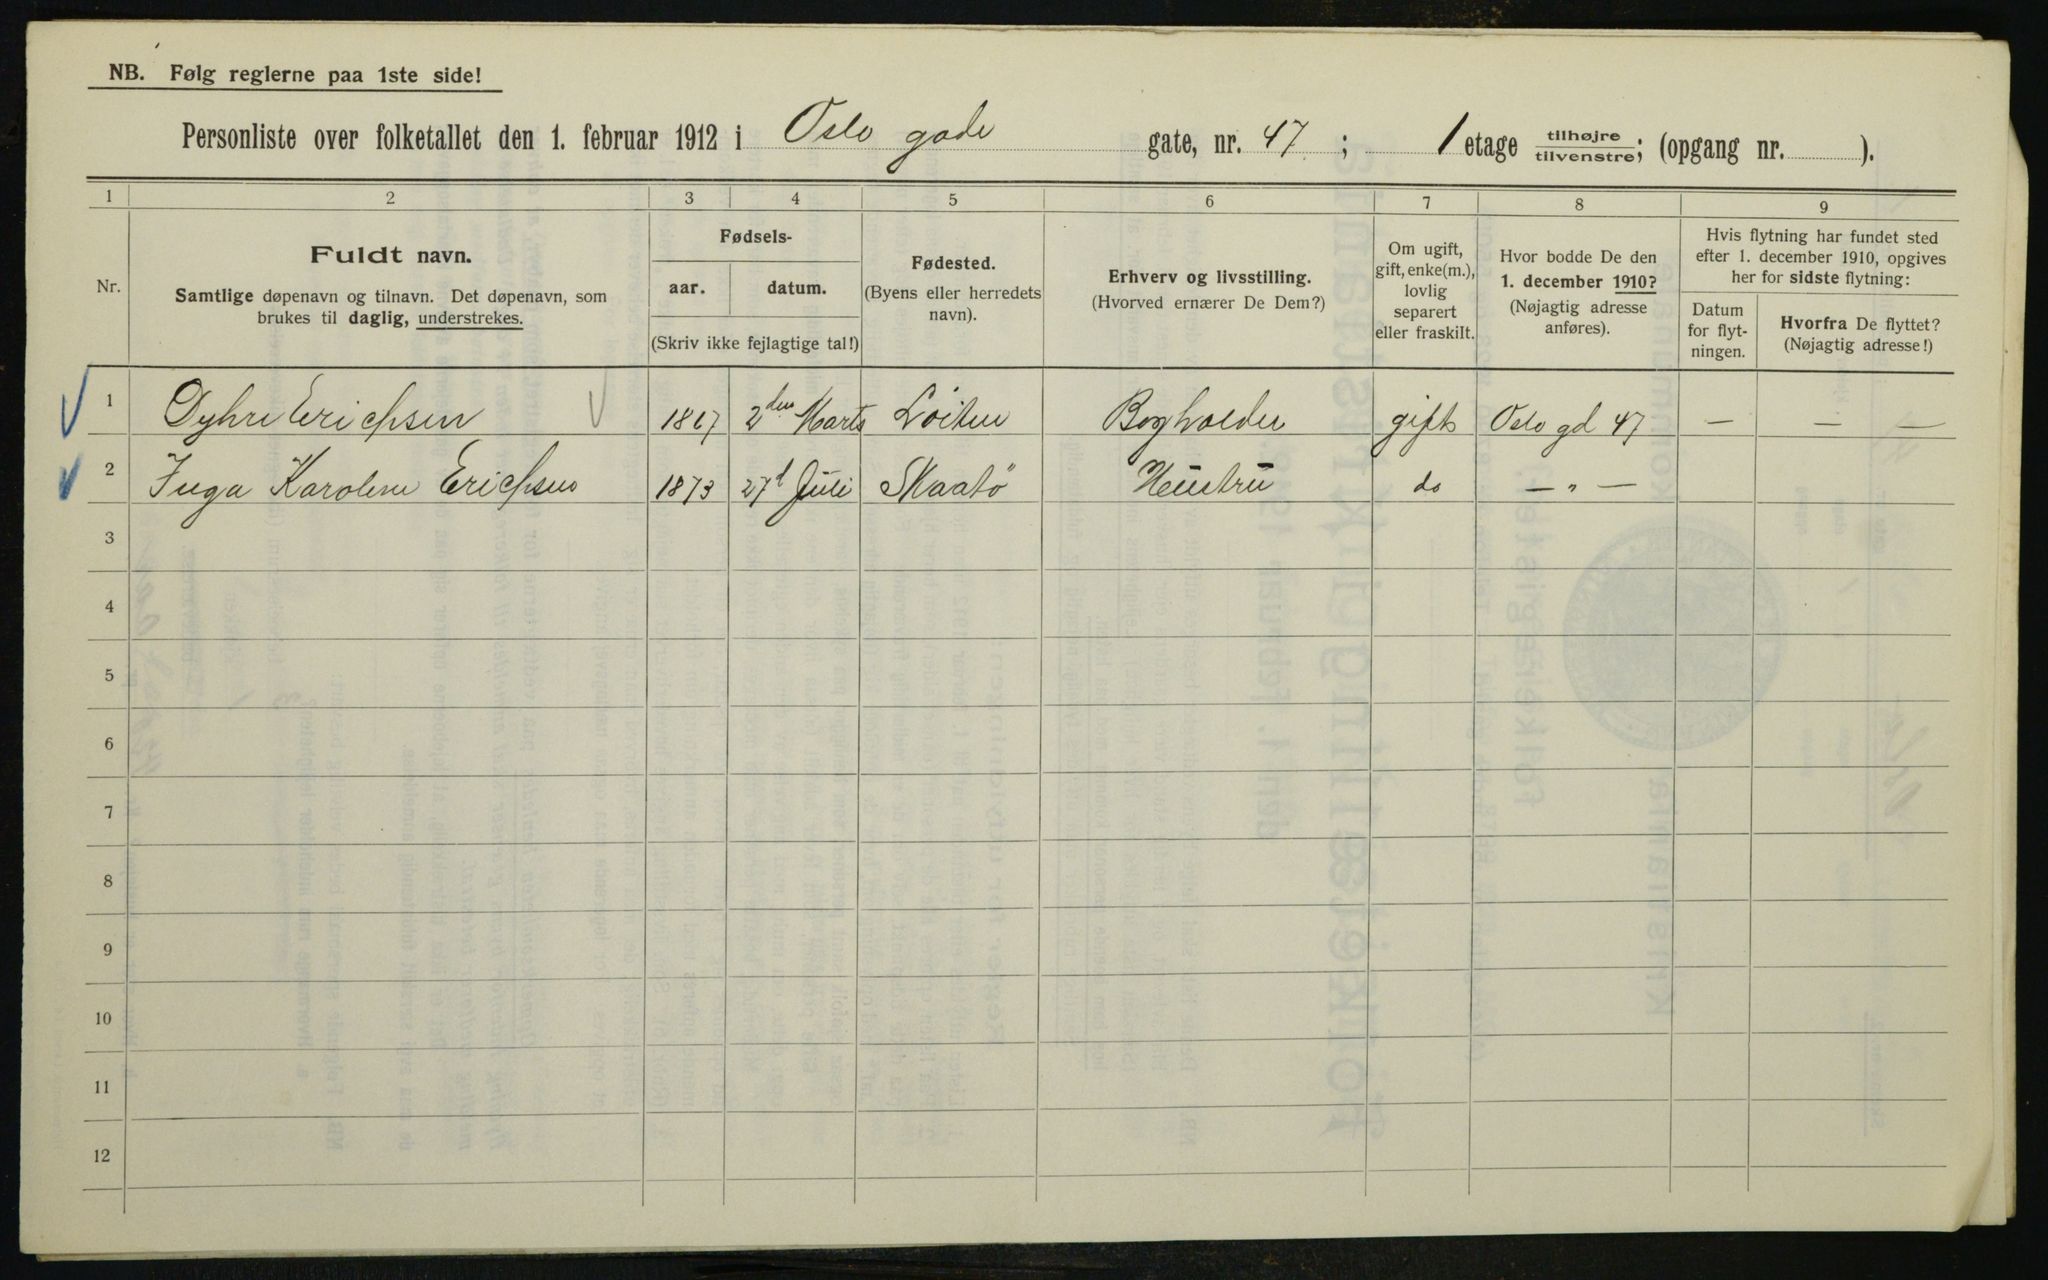 NB. Følg reglerne paa 1ste side!
Personliste over folketallet den 1. februar 1912 i Oslo gade gate, nr. 47; 1 etage tilhøjre/tilvenstre; (opgang nr. ).
1 2 3 4 5 6 7 8 9
Nr.
Fuldt navn.
Samtlige døpenavn og tilnavn. Det døpenavn, som
brukes til daglig, understrekes.
Fødsels-
aar. datum.
(Skriv ikke fejlagtige tal!)
Fødested.
(Byens eller herredets
navn).
Erhverv og livsstilling.
(Hvorved ernærer De Dem?)
Om ugift,
gift, enke(m.),
lovlig
separert
eller fraskilt.
Hvor bodde De den
1. december 1910?
(Nøjagtig adresse
anføres).
Hvis flytning har fundet sted
efter 1. december 1910, opgives
her for sidste flytning:
Datum
for flyt-
ningen.
Hvorfra De flyttet?
(Nøjagtig adresse!)
1 Dyhre Erichsen 1867 2den Marts Löiten Bogholder gift Oslo gd 47 — — —
2 Inga Karoline Erichsen 1873 27d Juli Skaatö Hustru do — " —
3
4
5
6
7
8
9
10
11
12